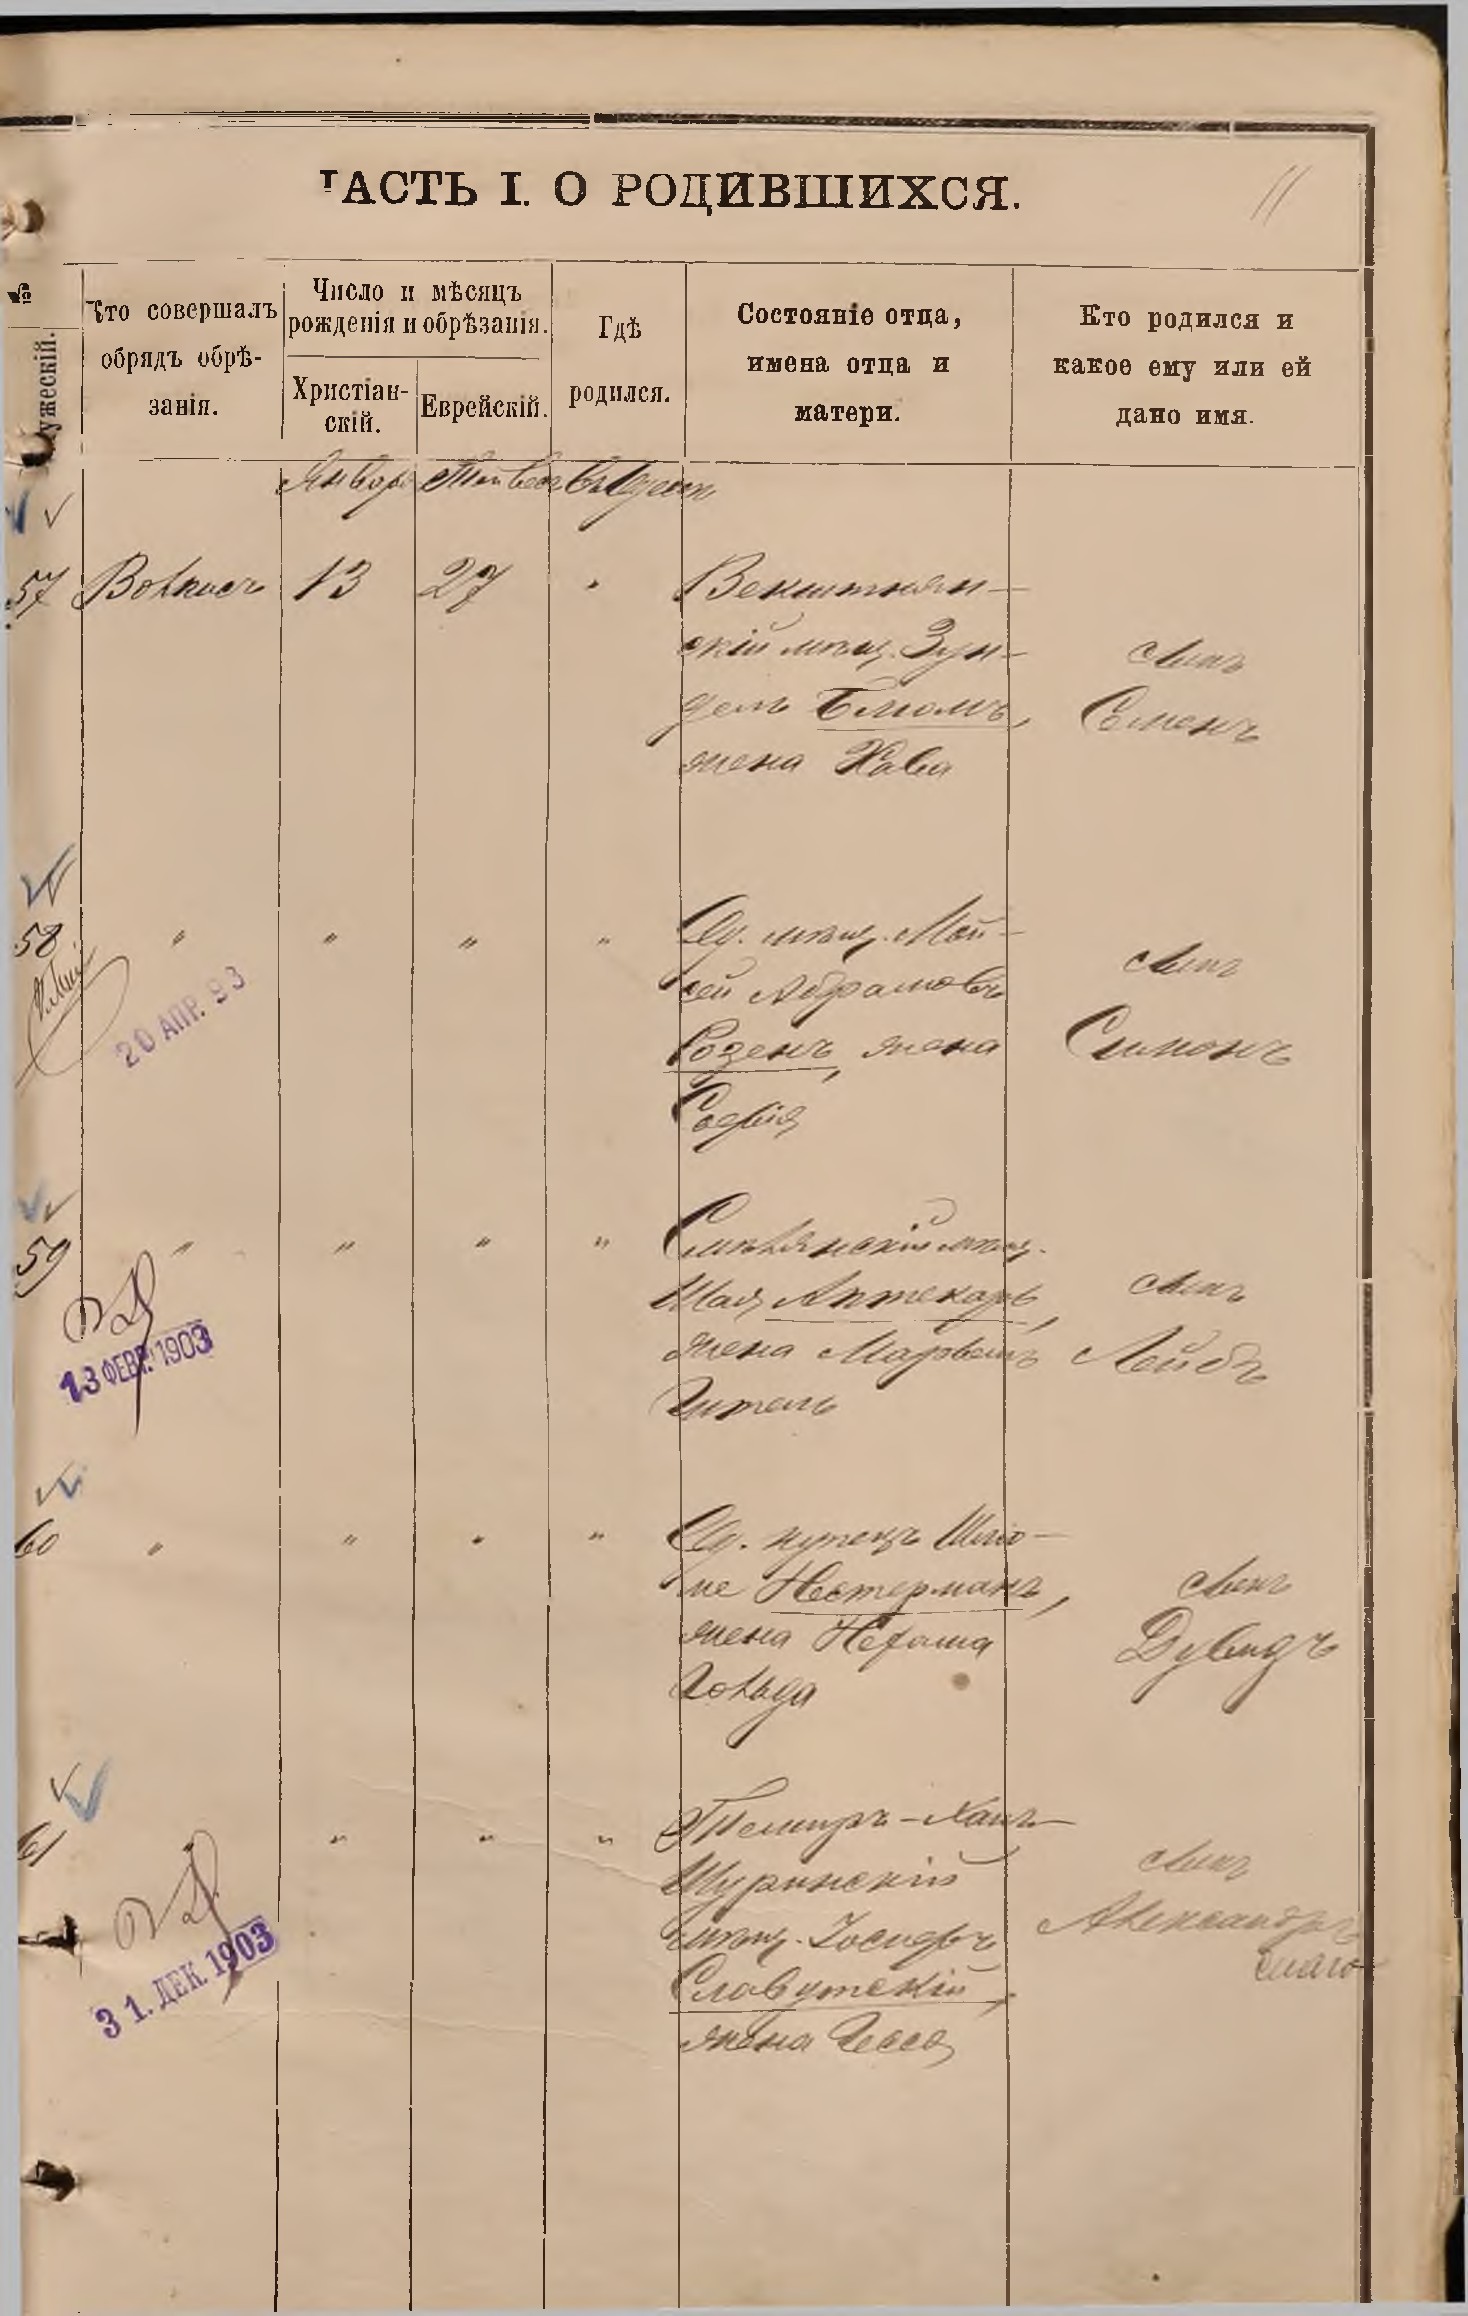 ЧАСТЬ I. О РОДИВШИХСЯ.
11
№
Мужескій.
Кто совершалъ
обрядъ обрѣ-
занія.
Число и мѣсяцъ
рожденія и обрѣзанія.
Христіан-
скій.
Еврейскій.
Гдѣ
родился.
Состояніе отца,
имена отца и
матери.
Кто родился и
какое ему или ей
дано имя.
Январь Тейвесъ Въ Одессѣ
57 Волкасъ 13 27 "
Векштнян-
скій мѣщ. Зун-
дель Блюмъ,
жена Хава
сынъ
Семенъ
58 " " " "
20 АПР. 93
Од. мѣщ. Мой-
сей Абрамовъ
Розенъ, жена
Софія
сынъ
Симонъ
59 " " " "
13 ФЕВР. 1903
Смѣлянскій мѣщ.
Шая Аптекарь,
жена
Гитель
сынъ
Лейбъ
60 " " " "
Од. купецъ Шлio-
ме Нестерманъ,
жена Нехама
Гольда
сынъ
Дувидъ
61 " " " "
31. ДЕК. 1903
Темиръ-Ханъ-
Шуринскій
мѣщ. Іосифъ
Славутскій,
жена Гесся
сынъ
Александръ